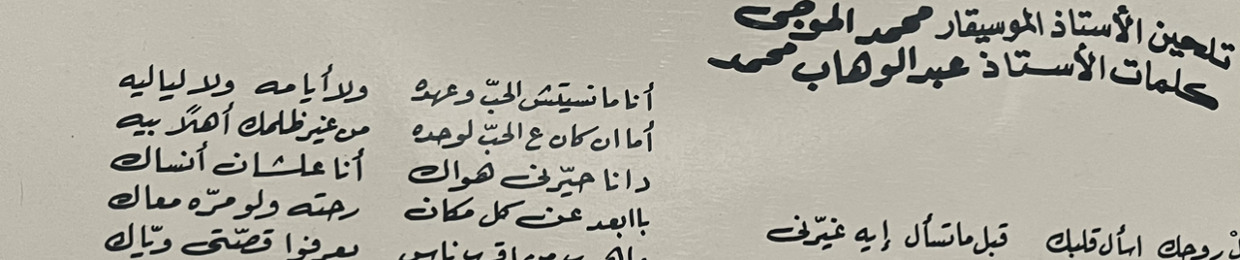 تلحين الأستاذ الموسيقار محمد الموجى
كلمات الأستاذ عبدالوهاب محمد
روحك اسأل قلبك قبل ماتسأل إيه غيّرنى
أنا مانسيتش الحبّ وعهده ولا أيامه ولا لياليه
أما ان كان ع الحبّ لوحده من غير ظلمك أهلًا بيه
دانا حيّرنى هواك أنا علشان أنساك
باابعد عن كل مكان رحته ولو مرّه معاك
ناس يعرفوا قصّتى ويّاك